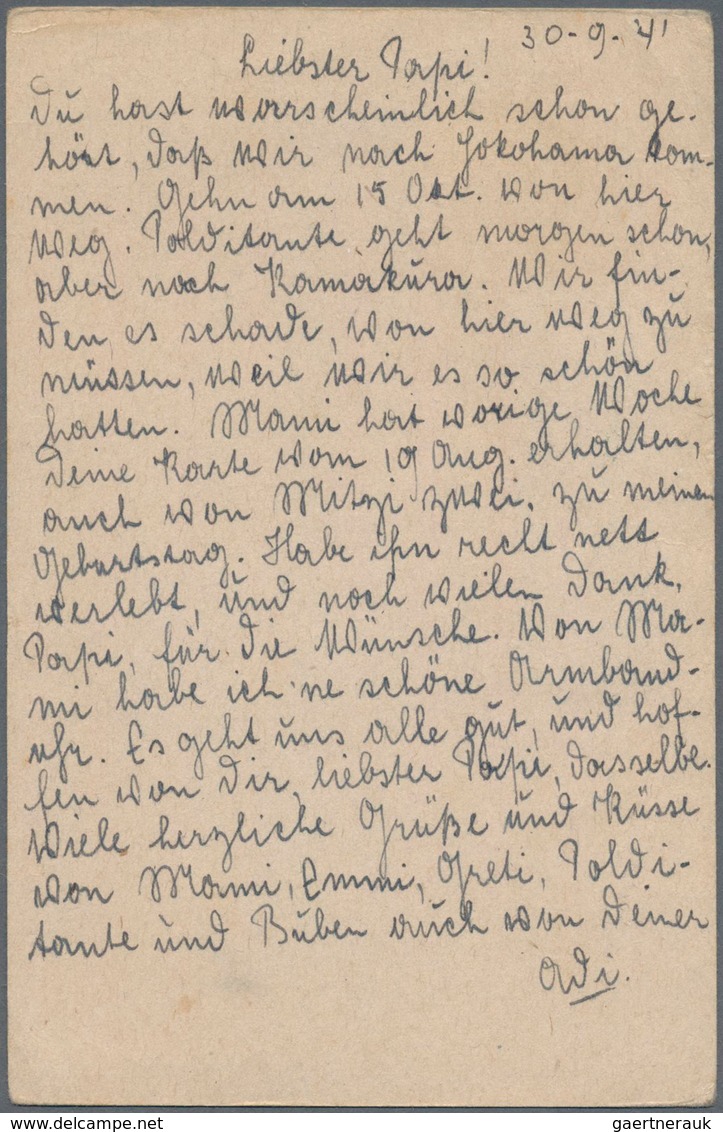 30-9-41
Liebster Papi!
Du hast warrscheinlich schon ge-
hört, daß wir nach Yokohama kom-
men. Gehn am 15 Okt. von hier
weg. Polditante geht morgen schon,
aber nach Kamakura. Wir fin-
den es schade, von hier weg zu
müssen, weil wir es so schön
hatten. Mami hat vorige Woche
Deine Karte vom 19 Aug. erhalten,
auch von Mitzi zwei, zu meinen
Geburtstag. Habe ihn recht nett
verlebt, und noch vielen Dank,
Papi, für die Wünsche. Von Ma-
mi habe ich 'ne schöne Armband-
uhr. Es geht uns alle gut, und hof-
fen von Dir, liebster Papi, dasselbe.
Viele herzliche Grüße und Küsse
von Mami, Emmi, Greti, Poldi-
tante und Buben auch von Deiner
Adi.
gaertnerauk